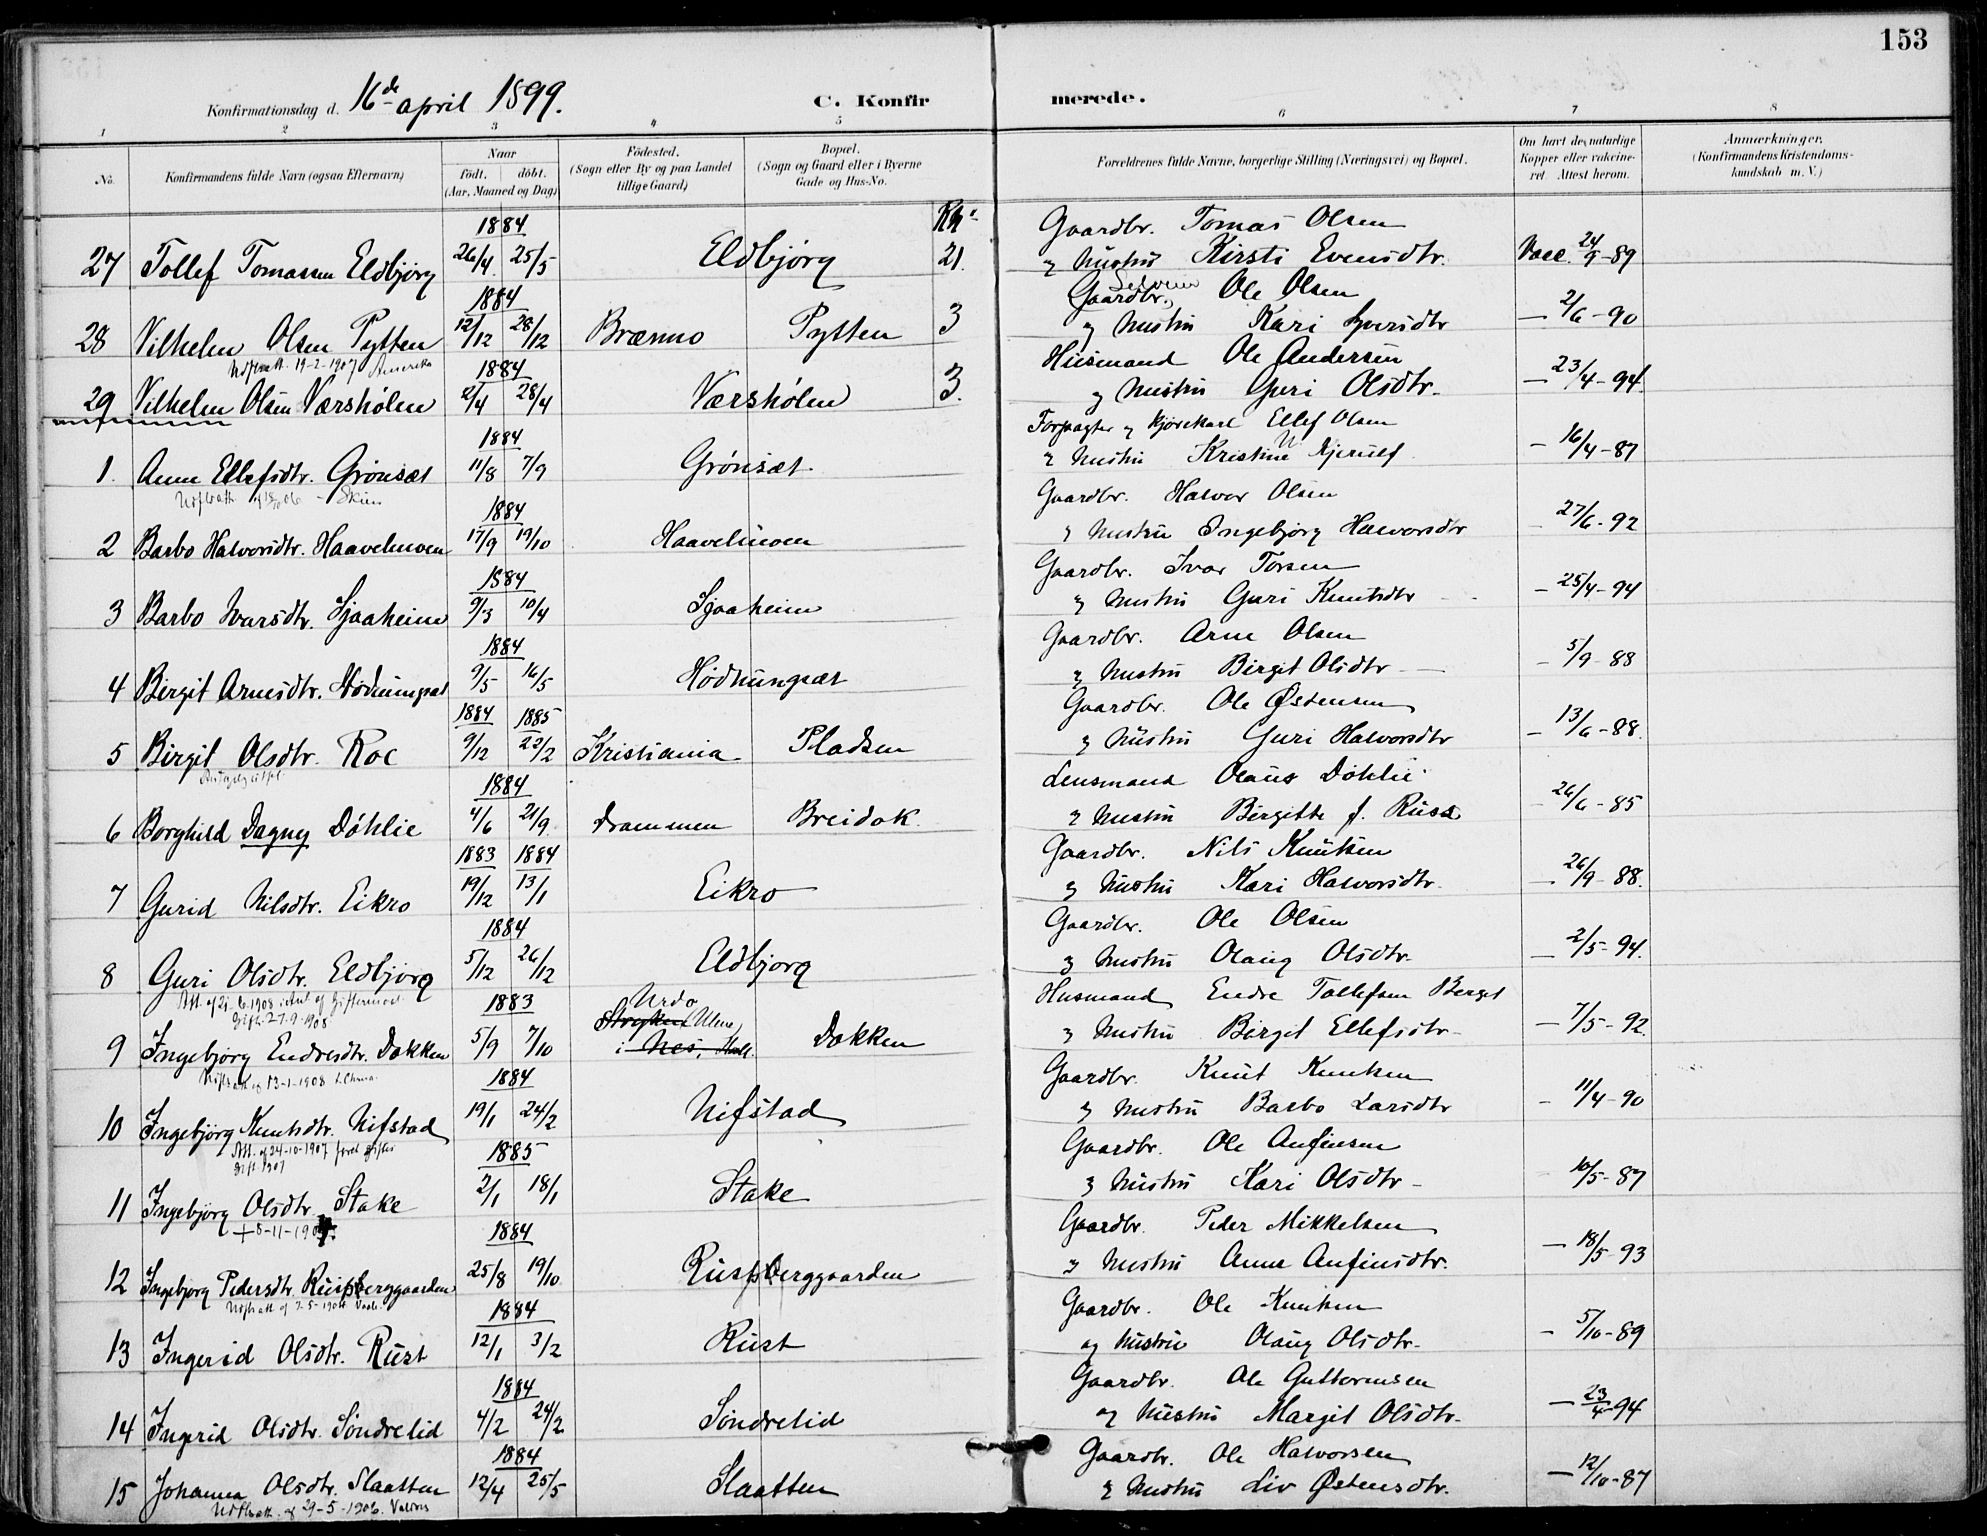 153
Konfirmationsdag d. 16de april 1899.
C. Konfirmerede.
1 2 3 4 5 6 7 8
No. Konfirmandens fulde Navn (ogsaa Efternavn) Naar født. døbt. (Aar, Maaned og Dag) Fødested. (Sogn eller By og paa Landet tillige Gaard) Bopæl. (Sogn og Gaard eller i Byerne Gade og Hus-No. Forældrenes fulde Navne, borgerlige Stilling (Næringsvei) og Bopæl. Om havt de naturlige Kopper eller vakcineret. Attest herom. Anmærkninger. (Konfirmandens Kristendomskundskab m. V.)
1884 Gaardbr. Tomas Olsen
27 Tollef Tomassen Eldbjørg 26/4 25/5 Eldbjørg 21. og Hustru Kirsti Evensdtr. Vacc. 24/9-89
1884 Gaardbr. Ole Olsen
28 Vilhelm Olsen Pytten 12/12 28/12 Brænno Pytten 3 og Hustru Kari Iversdtr — 2/6-90
19-2-1907 Amerika
1884 Husmand Ole Andersen
29 Vilhelm Olsen Værshølen 2/4 28/4 Værshølen 3. og Hustru Guri Olsdtr. — 23/4-94
1884 Forpagter og kjørekarl Ellef Olsen
1. Anne Ellefsdtr. Grønsæt 11/8 7/9 Grønsæt og Hustru Kristine N Kjerulf. — 16/4-87
1884 Gaardbr. Halvor Olsen
2 Barbo Halvorsdtr. Haavelmoen 17/9 19/10 Haavelmoen og Hustru Ingebjørg Halvorsdtr — 27/6-92
1884 Gaardbr. Ivar Torsen
3 Barbo Ivarsdtr. Sjaaheim 9/3 10/4 Sjaaheim og Hustru Guri Knutsdtr — 25/4-94
1884 Gaardbr. Arne Olsen
4 Birgit Arnesdtr. Hødnungsæt 9/5 16/5 Hødnungsæt og Hustru Birgit Olsdtr — 5/9-88
1884 1885 Gaardbr. Ole Østensen
5 Birgit Olsdtr. Roe 9/12 22/2 Kristiania Pladsen og Hustru Guri Halvorsdtr — 13/6-88.
1884 Lensmand Olaus Døhlie
6 Borghild Dagny Døhlie 4/6 21/9 Drammen Breidok og Hustru Birgitte f. Ruse — 26/6-85
1883 1884 Gaardbr. Nils Knutsen
7 Gurid Nilsdtr. Eikro 19/12 13/1 Eikro og Hustru Kari Halvorsdtr. — 26/9-88.
1884 Gaardbr. Ole Olsen
8 Guri Olsdtr. Eldbjørg 5/12 26/12 Eldbjørg og Hustru Olaug Olsdtr. — 2/5-94.
Gift. 27-9-1908
1883 Urdo Husmand Endre Tollefsen Berget
9 Ingebjørg Endresdtr. Dokken 5/9 7/10 i Nes, Hall. Dokken og Hustru Birgit Ellefsdtr — 7/5-92.
13-1-1908
1884 Gaardbr. Knut Knutsen
10 Ingebjørg Knutsdtr. Nifstad 19/1 24/2 Nifstad og Hustru Barbo Larsdtr — 11/4-90
Att. af 24-10-1907
gift 1907
1885 Gaardbr. Ole Anfinsen
11 Ingebjørg Olsdtr. Stake 2/1 18/1 Stake og Hustru Kari Olsdtr — 10/5-87
1884 Gaardbr. Peder Mikkelsen
12 Ingebjørg Pedersdtr. Ruspberggaarden 25/8 19/10 Ruspberggaarden og Hustru Anne Anfinsdtr. — 18/5-93
1884 Gaardbr. Ole Knutsen
13 Ingerid Olsdtr. Rust 12/1 3/2 Rust og Hustru Olaug Olsdtr. — 5/10-89
1884 Gaardbr. Ole Guttormsen
14 Ingrid Olsdtr. Søndrelid 4/2 24/2 Søndrelid og Hustru Margit Olsdtr. — 23/4-94
1884 Gaardbr. Ole Halvorsen
15 Johanna Olsdtr. Slaatten 12/4 25/5 Slaatten og Hustru Liv Østensdtr. — 12/10-87
29-5-1906. Valdres